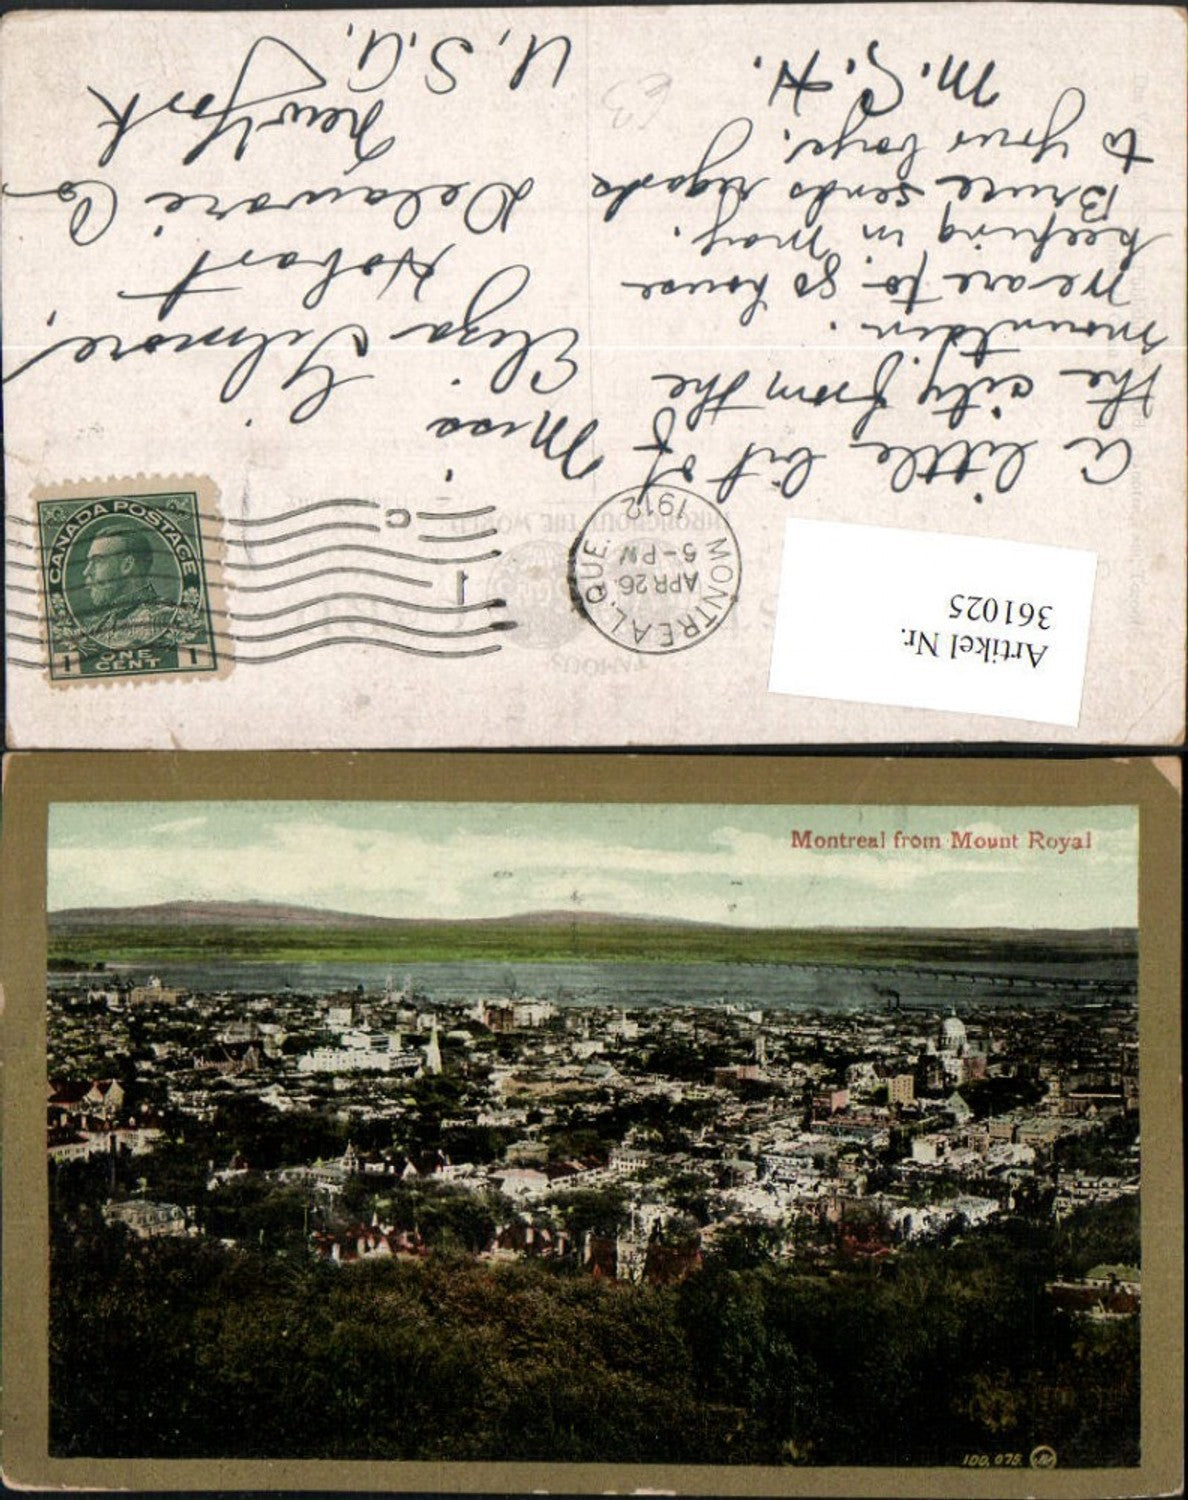 A little bit of
the city from the
mountain.
We are to go house
keeping in May.
Bruce sends regards
to your boys.
M. G. H.
Miss
Eliza Gilmore,
Hobart
Delaware Co
New York
U.S.A.
63
MONTREAL.QUE.
APR 26
5-PM
1912
C
1
CANADA POSTAGE
1 ONE CENT 1
THROUGHOUT THE WORLD
FAMOUS
Artikel Nr.
361025
Montreal from Mount Royal
100,075
JV